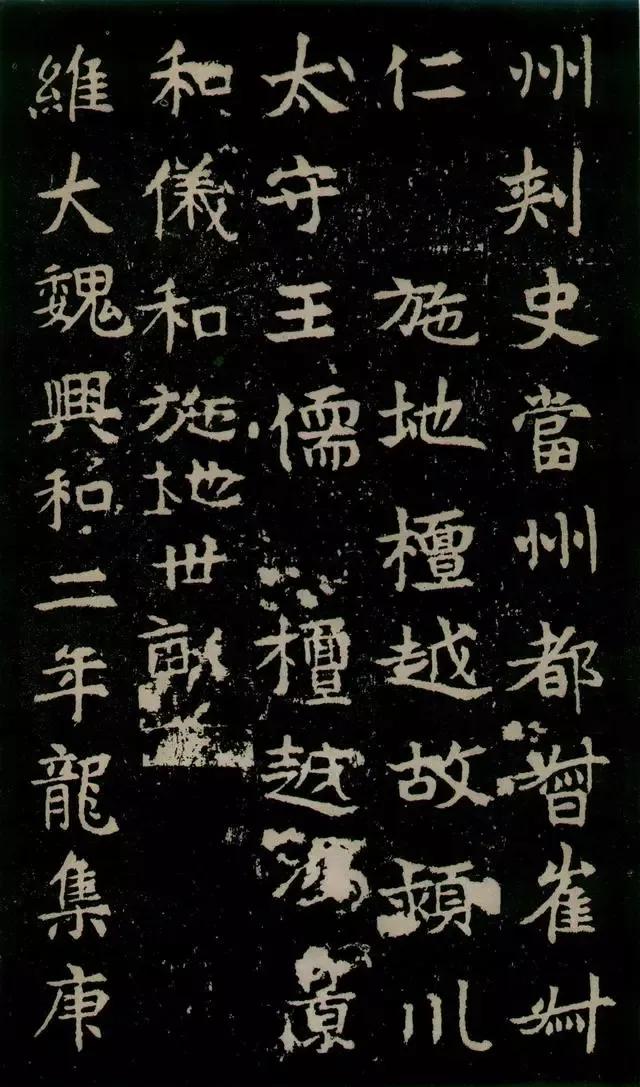 州刾史當州都督崔叔
仁施地檀越故潁川
太守王儒檀越
和儀和施地世
維大魏興和二年龍集庚